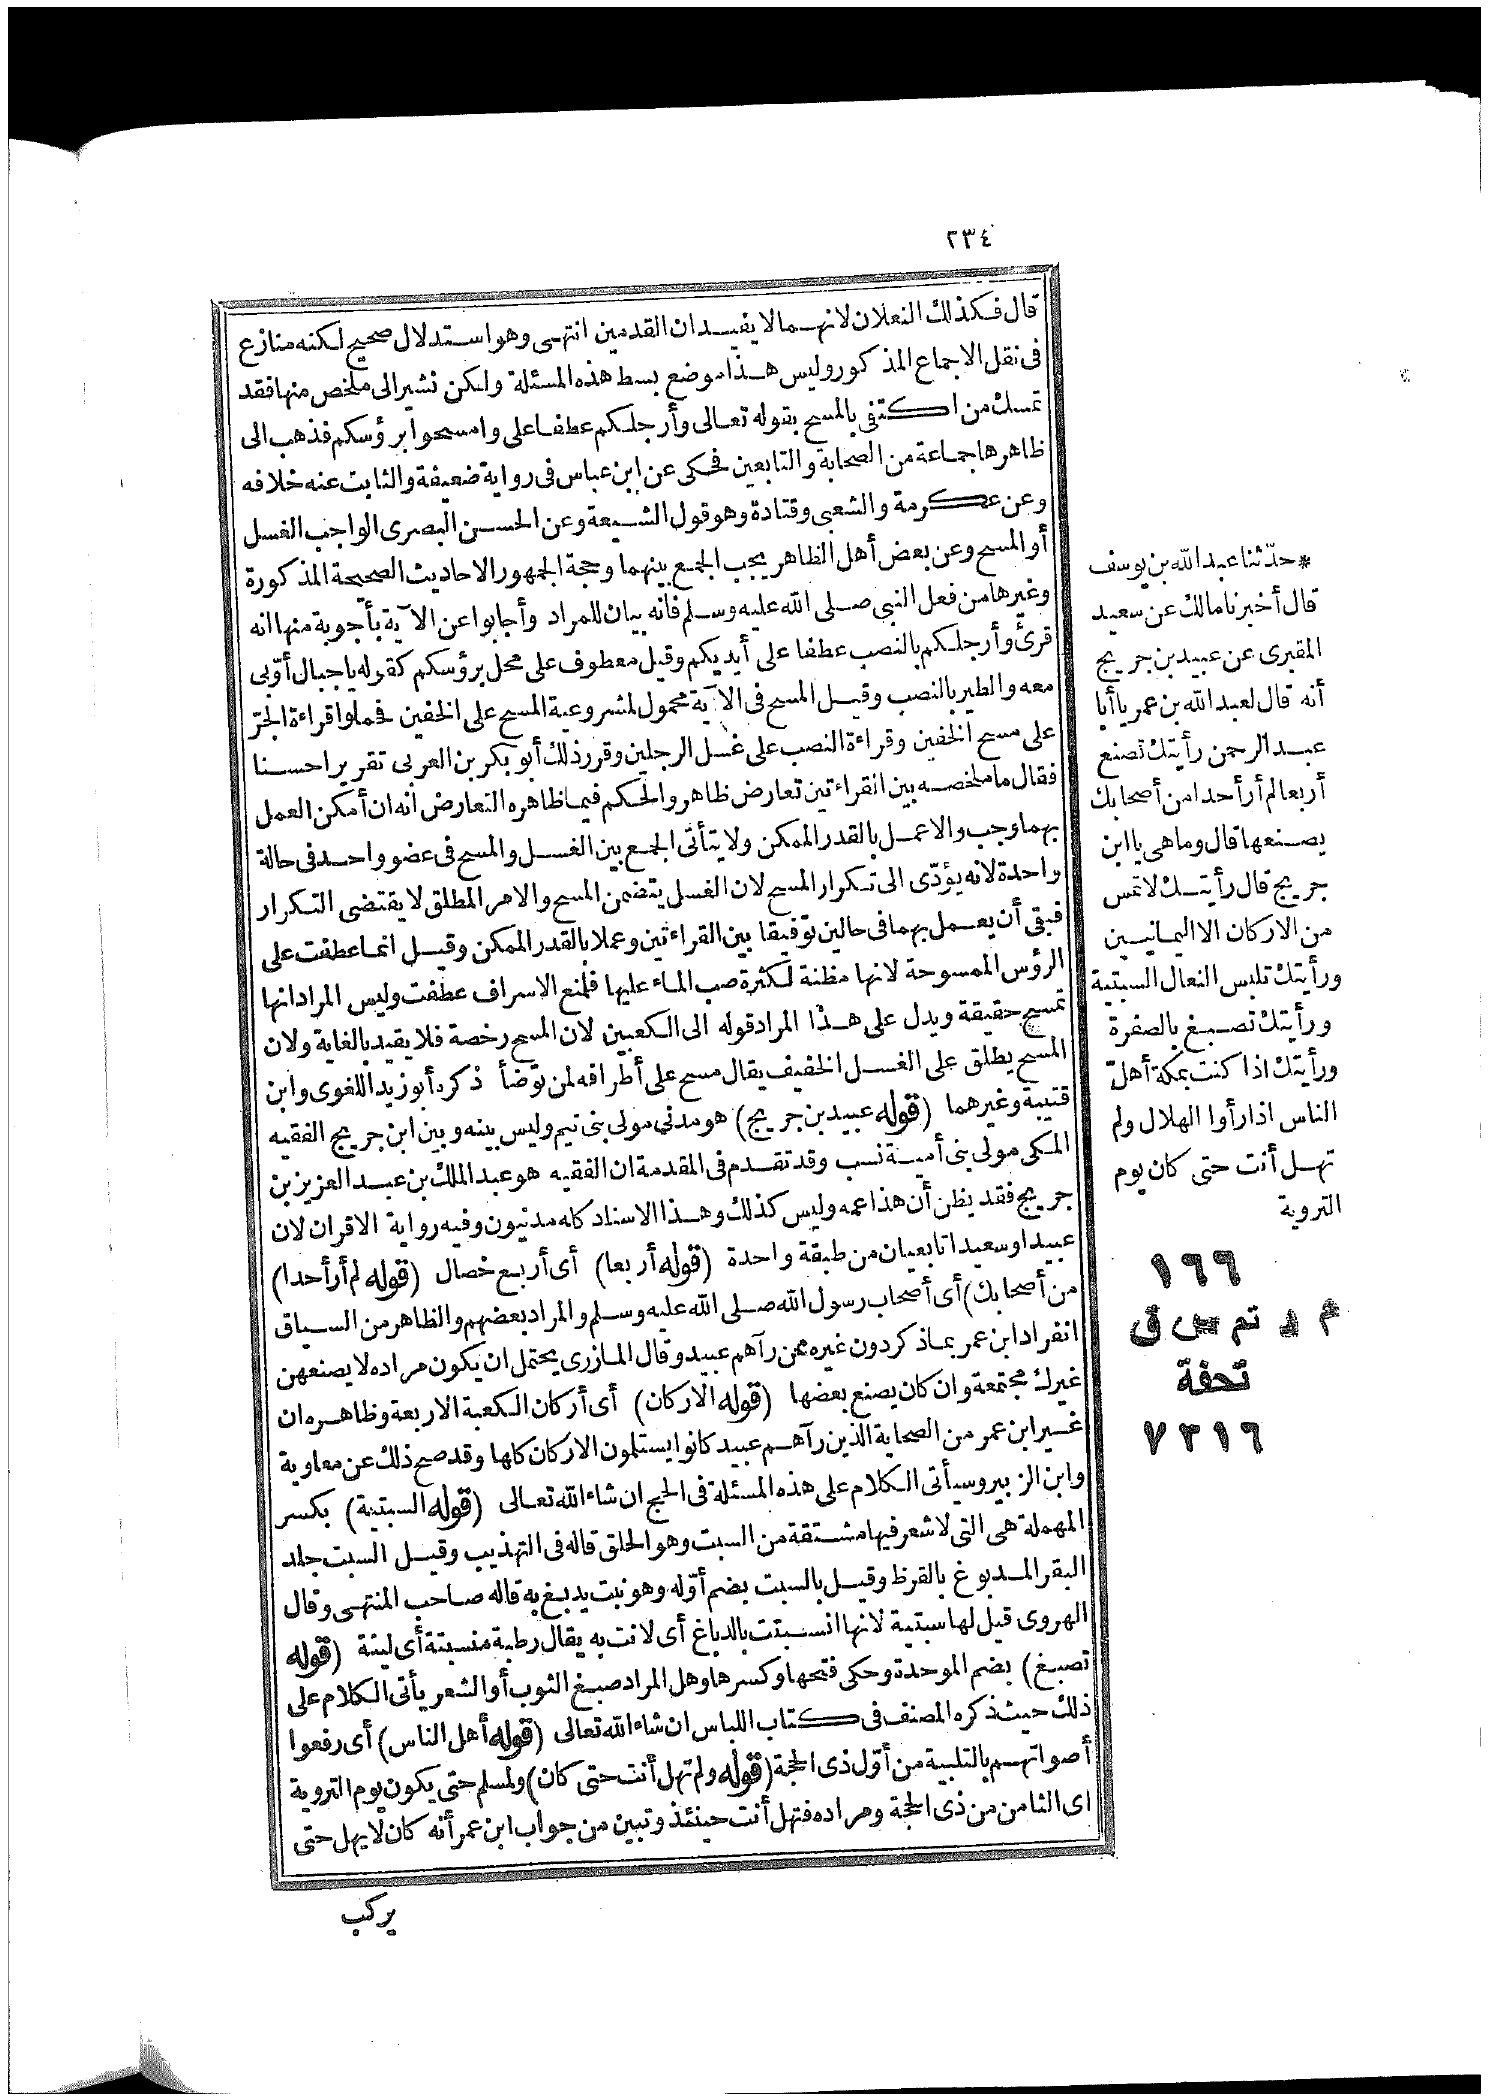 ٢٣٤
قال فكذلك النعلان لانهما لا يفيدان القدمين انتهى وهو استدلال صحيح لكنه منازع
فى نقل الاجماع المذكور وليس هذا موضع بسط هذه المسئلة ولكن نشير الى ملخص منها فقد
تمسك من اكتفى بالمسح بقوله تعالى وأرجلكم عطفا على وامسحوا برؤسكم فذهب الى
ظاهرها جماعة من الصحابة والتابعين فحكى عن ابن عباس فى رواية ضعيفة والثابت عنه خلافه
وعن عكرمة والشعبى وقتادة وهو قول الشيعة وعن الحسن البصرى الواجب الغسل
أو المسح وعن بعض أهل الظاهر يجب الجمع بينهما وحجة الجمهور الاحاديث الصحيحة المذكورة
وغيرها من فعل النبى صلى الله عليه وسلم فانه بيان للمراد وأجابوا عن الآية بأجوبة منها انه
قرئ وأرجلكم بالنصب عطفا على أيديكم وقيل معطوف على محل برؤسكم كقوله يا جبال أوّبى
معه والطير بالنصب وقيل المسح فى الآية محمول لمشروعية المسح على الخفين فحملوا قراءة الجرّ
على مسح الخفين وقراءة النصب على غسل الرجلين وقرر ذلك أبو بكر بن العربى تقريرا حسنا
فقال ما ملخصه بين القراءتين تعارض ظاهر والحكم فيما ظاهره التعارض انه ان أمكن العمل
بهما وجب والا عمل بالقدر الممكن ولا يتأتى الجمع بين الغسل والمسح فى عضو واحد فى حالة
واحدة لانه يؤدّى الى تكرار المسح لان الغسل يتضمن المسح والامر المطلق لا يقتضى التكرار
فبقى أن يعمل بهما فى حالين توفيقا بين القراءتين وعملا بالقدر الممكن وقيل انما عطفت على
الرؤس الممسوحة لانها مظنة لكثرة صب الماء عليها فلمنع الاسراف عطفت وليس المراد انها
تمسح حقيقة ويدل على هذا المراد قوله الى الكعبين لان المسح رخصة فلا يقيد بالغاية ولان
المسح يطلق على الغسل الخفيف يقال مسح على أطرافه لمن توضأ ذكره أبو زيد اللغوى وابن
قتيبة وغيرهما (قوله عبيد بن جريج) هو مدني مولى بنى تيم وليس بينه وبين ابن جريج الفقيه
المكى مولى بنى أمية نسب وقد تقدم فى المقدمة ان الفقيه هو عبد الملك بن عبد العزيز بن
جريج فقد يظن أن هذا عمه وليس كذلك وهذا الاسناد كله مدنيون وفيه رواية الاقران لان
عبيدا وسعيدا تابعيان من طبقة واحدة (قوله أربعا) أى أربع خصال (قوله لم أر أحدا)
من أصحابك) أى أصحاب رسول الله صلى الله عليه وسلم والمراد بعضهم والظاهر من السياق
انفراد ابن عمر بما ذكر دون غيره ممن رآهم عبيد وقال المازرى يحتمل ان يكون مراده لا يصنعهن
غيرك مجتمعة وان كان يصنع بعضها (قوله الاركان) أى أركان الكعبة الاربعة وظاهره ان
غير ابن عمر من الصحابة الذين رآهم عبيد كانوا يستلمون الاركان كلها وقد صح ذلك عن معاوية
وابن الزبير وسيأتى الكلام على هذه المسئلة فى الحج ان شاء الله تعالى (قوله السبتية) بكسر
المهملة هى التى لا شعر فيها مشتقة من السبت وهو الحلق قاله فى التهذيب وقيل السبت جلد
البقر المدبوغ بالقرظ وقيل بالسبت بضم أوّله وهو نبت يدبغ به قاله صاحب المنتهى وقال
الهروى قيل لها سبتية لانها انسبتت بالدباغ أى لانت به يقال رطبة منسبتة أى لينة (قوله
تصبغ) بضم الموحدة وحكى فتحها وكسرها وهل المراد صبغ الثوب أو الشعر يأتى الكلام على
ذلك حيث ذكره المصنف فى كتاب اللباس ان شاء الله تعالى (قوله أهل الناس) أى رفعوا
أصواتهم بالتلبية من أوّل ذى الحجة (قوله ولم تهل أنت حتى كان) ولمسلم حتى يكون يوم التروية
اى الثامن من ذى الحجة ومراده فتهل أنت حينئذ وتبين من جواب ابن عمر أنه كان لا يهل حتى
يركب
* حدّثنا عبد الله بن يوسف
قال أخبرنا مالك عن سعيد
المقبرى عن عبيد بن جريج
أنه قال لعبد الله بن عمر يا أبا
عبد الرحمن رأيتك تصنع
أربعا لم أر أحدا من أصحابك
يصنعها قال وما هى يا ابن
جريج قال رأيتك لا تمس
من الاركان الا اليمانيين
ورأيتك تلبس النعال السبتية
ورأيتك تصبغ بالصفرة
ورأيتك اذا كنت بمكة أهلّ
الناس اذا رأوا الهلال ولم
تهل أنت حتى كان يوم
التروية
١٦٦
م د تم س ق
تحفة
٧٣١٦